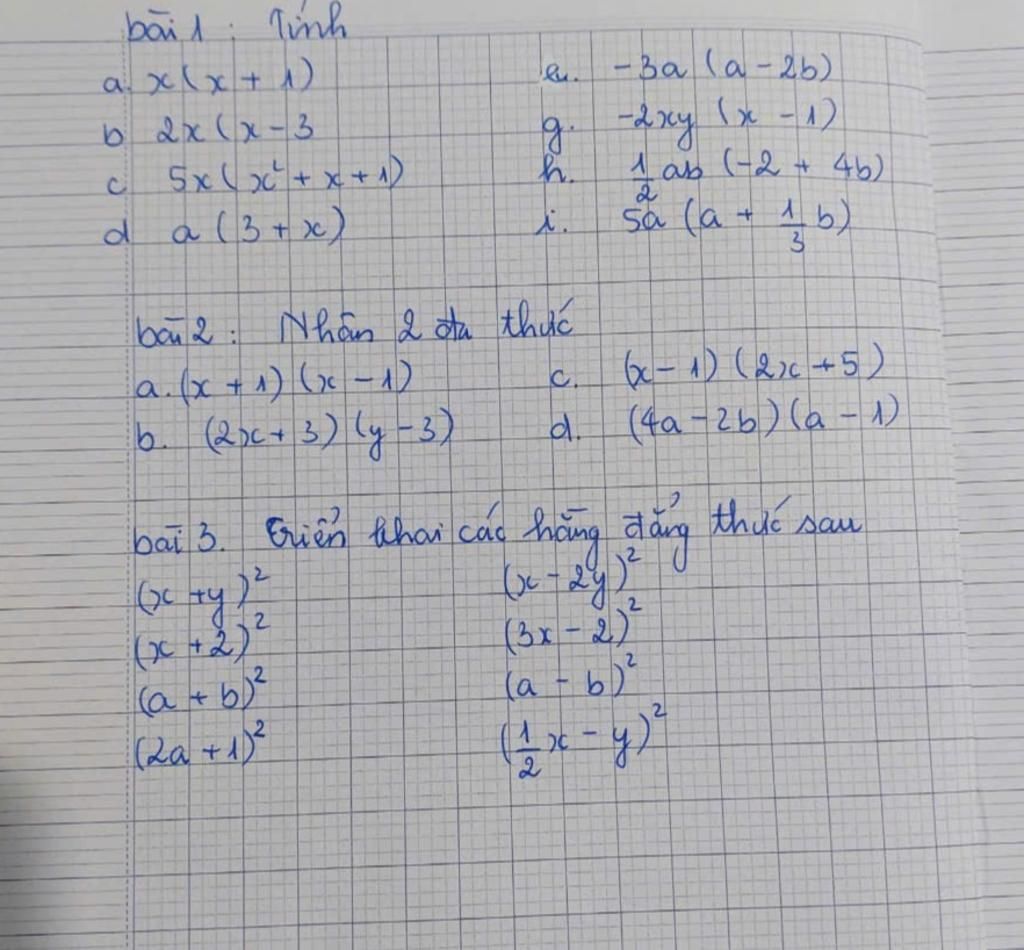 bài 1 : Tính
a. x(x + 1) e. -3a (a - 2b)
b 2x(x - 3 g. -2xy (x - 1)
c 5x(x² + x + 1) h. 1/2 ab (-2 + 4b)
d a (3 + x) i. 5a (a + 1/3 b)
bài 2 : Nhân 2 đa thức
a. (x + 1) (x - 1) c. (x - 1) (2x + 5)
b. (2x + 3) (y - 3) d. (4a - 2b) (a - 1)
bài 3. Triển khai các hằng đẳng thức sau
(x + y)² (x - 2y)²
(x + 2)² (3x - 2)²
(a + b)² (a - b)²
(2a + 1)² (1/2 x - y)²